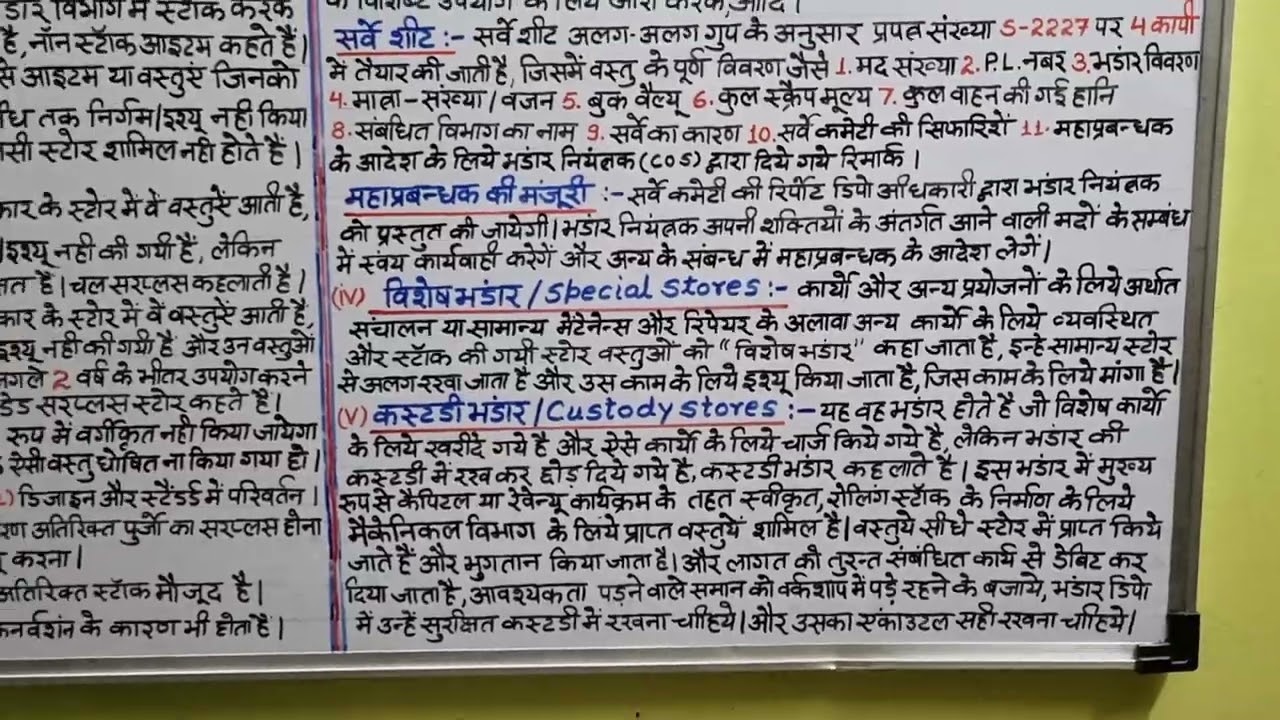 डार विभाग में स्टाक करके
है, नॉन स्टॉक आइटम कहते हैं।
से आइटम या वस्तुएं जिनको
धि तक निर्गम/इश्यू नही किया
सी स्टोर शामिल नही होते हैं।
कार के स्टोर में वे वस्तुऐं आती है,
इश्यू नही की गयी हैं, लेकिन
त है। चल सरप्लस कहलाती है।
कार के स्टोर में वें वस्तुऐं आती हैं,
इश्यू नही की गयी है और उन वस्तुओं
गले 2 वर्ष के भीतर उपयोग करने
डेड सरप्लस स्टोर कहते है।
रूप में वर्गीकृत नही किया जायेगा
ऐसी वस्तु घोषित ना किया गया हो।
) डिजाइन और स्टैंडर्ड में परिवर्तन।
रण अतिरिक्त पुर्जो का सरप्लस होना
करना।
अतिरिक्त स्टॉक मौजूद है।
कनर्वशंन के कारण भी होता है।
के विशिष्ट उपयोग के लिये जारी करके, आदि।
सर्वे शीट :- सर्वे शीट अलग-अलग गुप के अनुसार प्रपत्र संख्या S-2227 पर 4 कापी
में तैयार की जाती है, जिसमें वस्तु के पूर्ण विवरण जैसे 1. मद संख्या 2. P.L. नबर 3. भंडार विवरण
4. मात्रा-संख्या/वजन 5. बुक वैल्यू 6. कुल स्क्रैप मूल्य 7. कुल वाहन की गई हानि
8. संबंधित विभाग का नाम 9. सर्वे का कारण 10. सर्वे कमेटी की सिफारिशें 11. महाप्रबन्धक
के आदेश के लिये भंडार नियंत्रक (COS) द्वारा दिये गये रिमार्क।
महाप्रबन्धक की मंजूरी :- सर्वे कमेटी की रिर्पोट डिपो अधिकारी द्वारा भंडार नियंत्रक
को प्रस्तुत की जायेगी। भंडार नियंत्रक अपनी शक्तियों के अंतर्गत आने वाली मदों के सम्बंध
में स्वंय कार्यवाही करेगें और अन्य के संबन्ध में महाप्रबन्धक के आदेश लेगें।
(iv) विशेष भंडार / Special Stores :- कार्यो और अन्य प्रयोजनों के लिये अर्थात
संचालन या सामान्य मेंटेनेन्स और रिपेयर के अलावा अन्य कार्यो के लिये व्यवस्थित
और स्टॉक की गयी स्टोर वस्तुओं को "विशेष भंडार" कहा जाता है, इन्हे सामान्य स्टोर
से अलग रखा जाता है और उस काम के लिये इश्यू किया जाता है, जिस काम के लिये मांगा है।
(V) कस्टडी भंडार / Custody Stores :- यह वह भंडार होते है जो विशेष कार्यो
के लिये खरीदे गये है और ऐसे कार्यो के लिये चार्ज किये गये है, लेकिन भंडार की
कस्टडी में रख कर छोड़ दिये गये है, कस्टडी भंडार कहलाते है। इस भंडार में मुख्य
रूप से कैपिटल या रेवेन्यू कार्यक्रम के तहत स्वीकृत, रोलिंग स्टॉक के निर्माण के लिये
मैकेनिकल विभाग के लिये प्राप्त वस्तुयें शामिल है। वस्तुये सीधे स्टोर में प्राप्त किये
जाते हैं और भुगतान किया जाता है। और लागत को तुरन्त संबंधित कार्य से डेबिट कर
दिया जाता है, आवश्यकता पड़ने वाले समान को वर्कशाप में पड़े रहने के बजाये, भंडार डिपो
में उन्हें सुरक्षित कस्टडी में रखना चाहिये। और उसका एकाउटल सही रखना चाहिये।